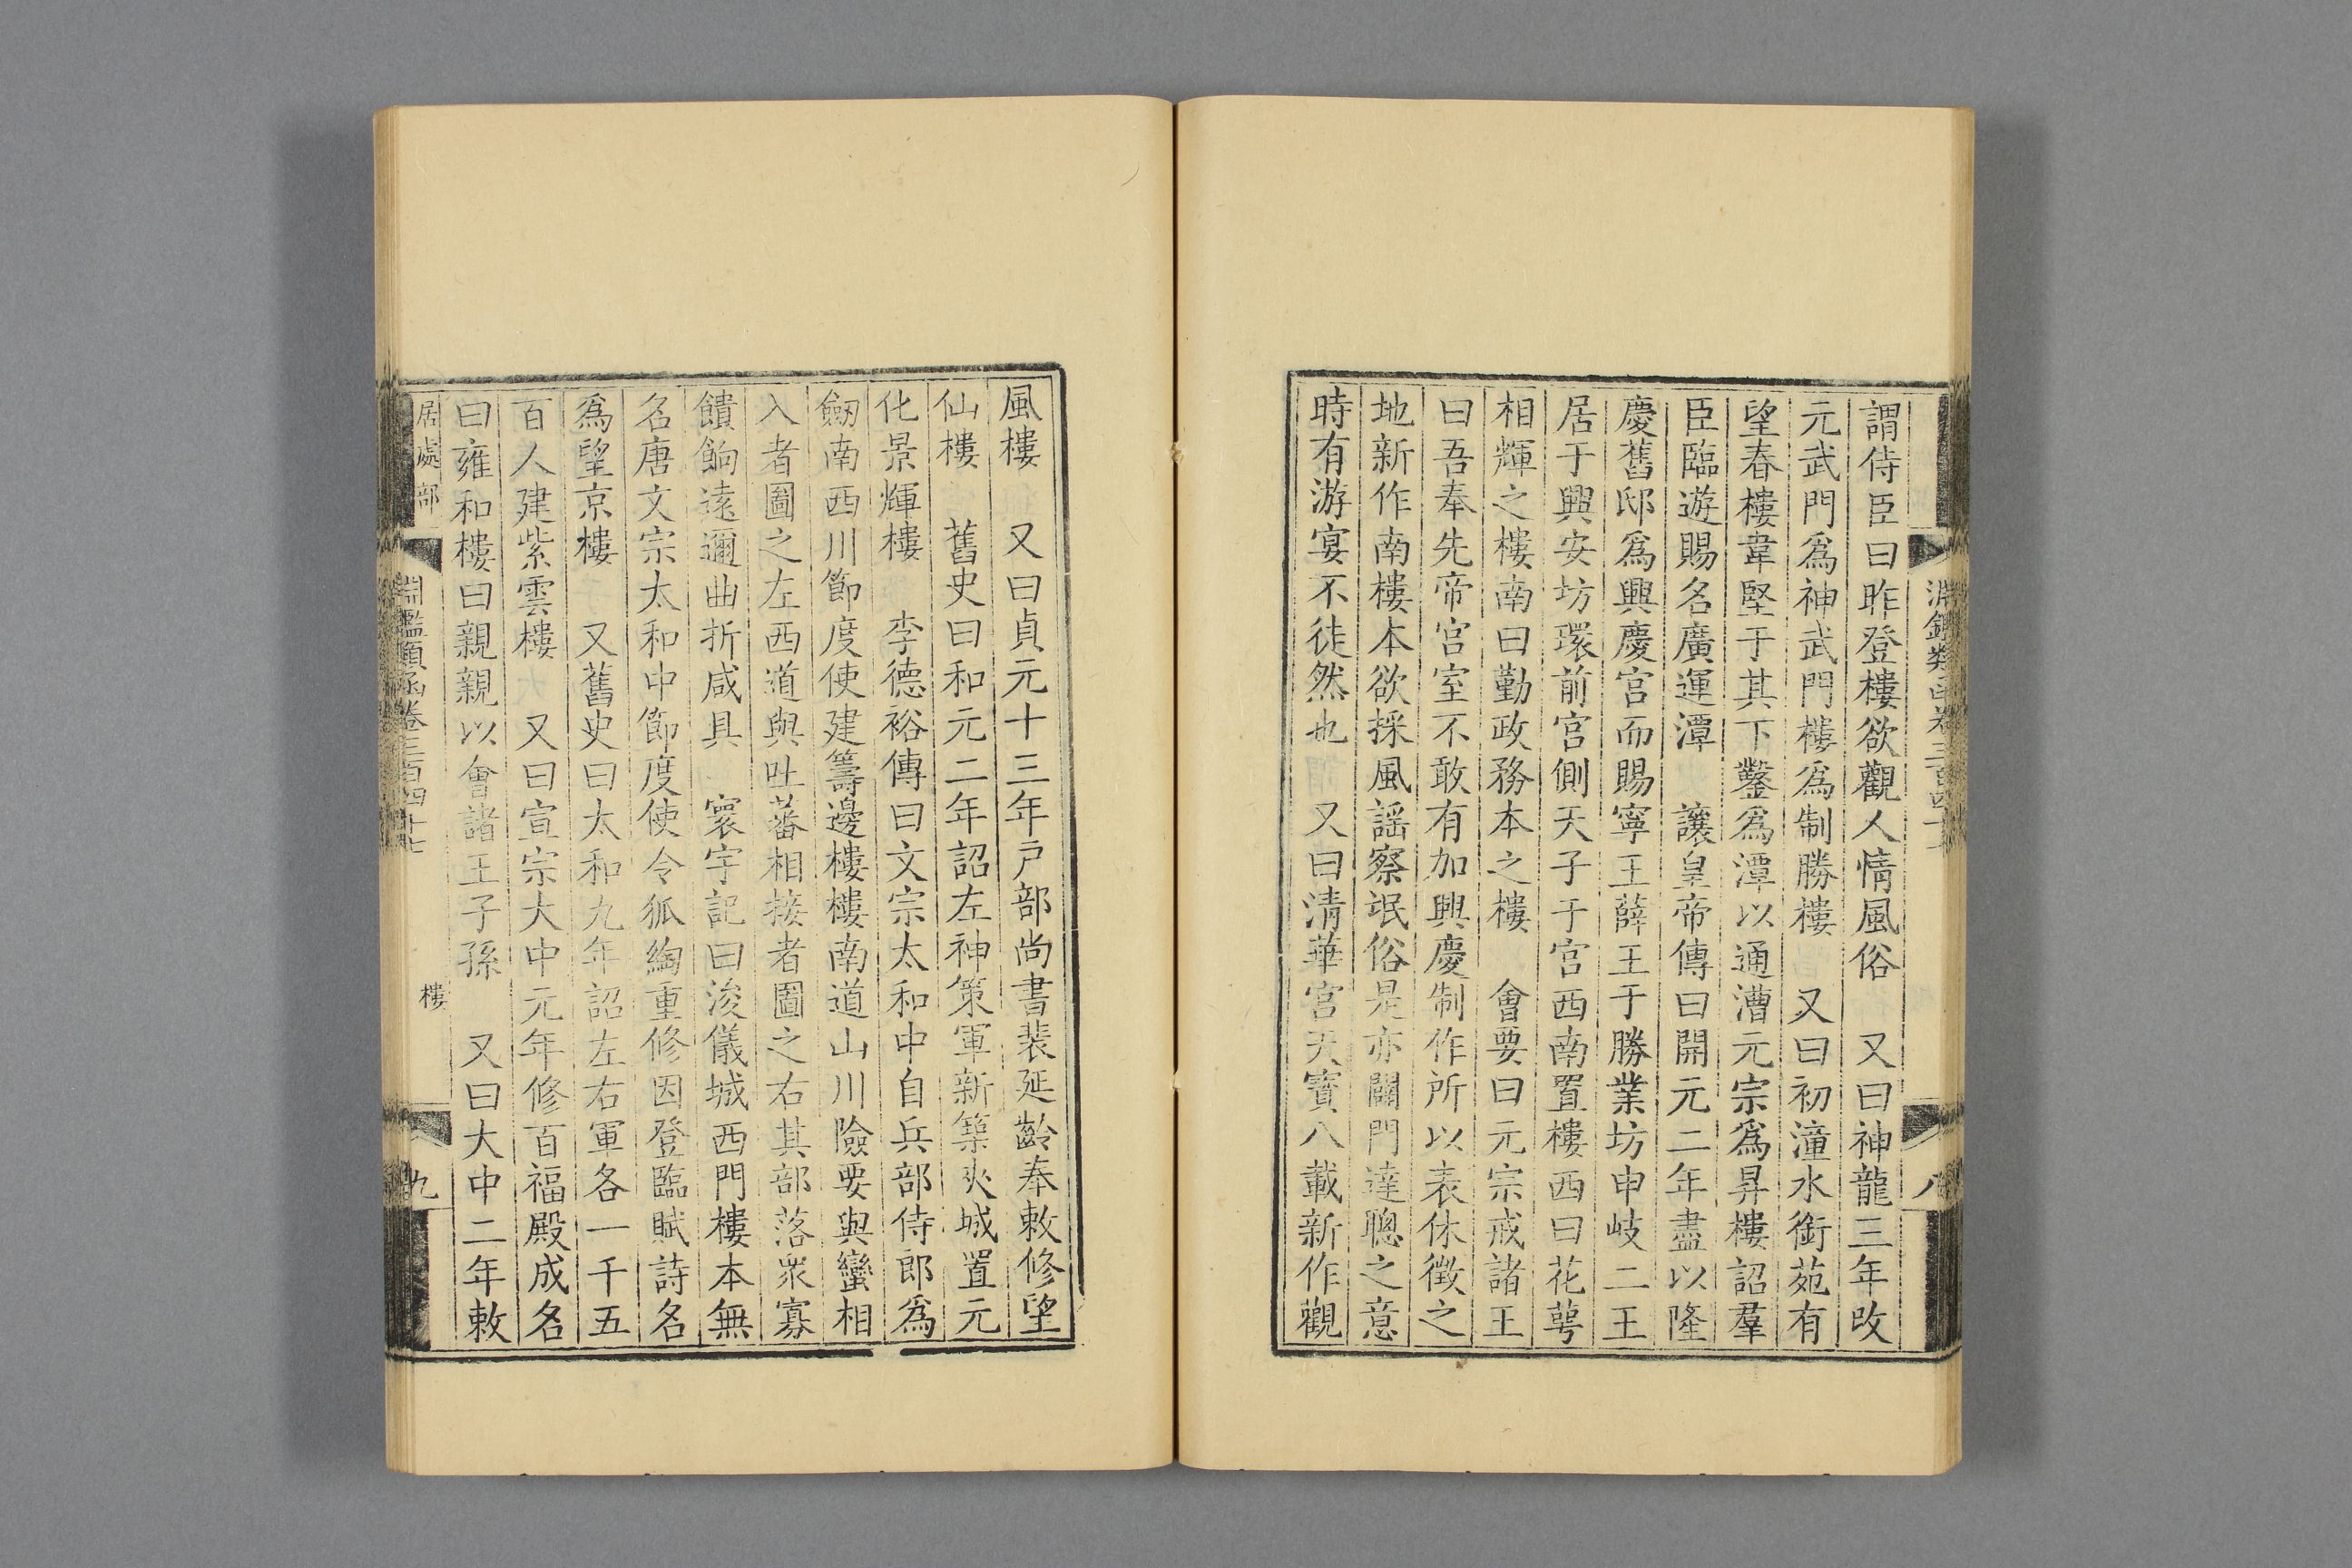 謂侍臣曰昨登樓欲觀人情風俗　又曰神龍三年改
元武門爲神武門樓爲制勝樓　又曰初滻水銜苑有
望春樓韋堅于其下鑿爲潭以通漕元宗爲昇樓詔羣
臣臨遊賜名廣運潭　讓皇帝傳曰開元二年盡以隆
慶舊邸爲興慶宮而賜寧王薛王于勝業坊申岐二王
居于興安坊環前宮側天子于宮西南置樓西曰花萼
相輝之樓南曰勤政務本之樓　會要曰元宗戒諸王
曰吾奉先帝宮室不敢有加興慶制作所以表休徵之
地新作南樓本欲採風謠察氓俗是亦闢門達聰之意
時有游宴不徒然也　又曰清華宮天寶八載新作觀
風樓　又曰貞元十三年戶部尚書裴延齡奉敕修望
仙樓　舊史曰和元二年詔左神策軍新築夾城置元
化景輝樓　李德裕傳曰文宗太和中自兵部侍郎爲
劒南西川節度使建籌邊樓樓南道山川險要與蠻相
入者圖之左西道與吐蕃相接者圖之右其部落衆寡
饋餉遠邇曲折咸具　寰宇記曰浚儀城西門樓本無
名唐文宗太和中節度使令狐綯重修因登臨賦詩名
爲望京樓　又舊史曰太和九年詔左右軍各一千五
百人建紫雲樓　又曰宣宗大中元年修百福殿成名
曰雍和樓曰親親以會諸王子孫　又曰大中二年敕
居處部　淵鑑類函卷三百四十七　樓　九